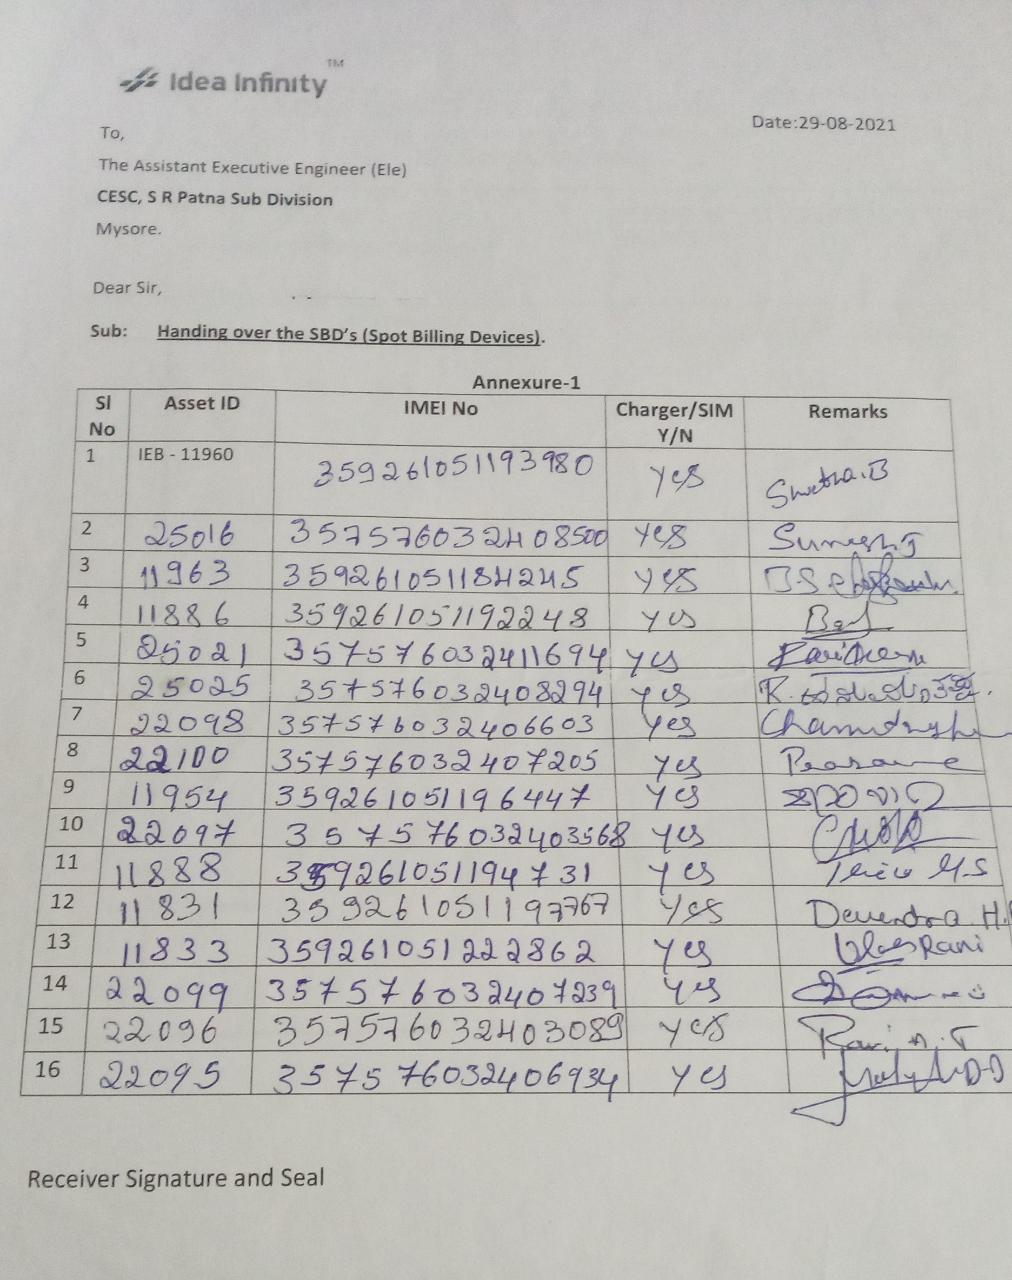 Idea Infinity TM
Date:29-08-2021
To,
The Assistant Executive Engineer (Ele)
CESC, S R Patna Sub Division
Mysore.
Dear Sir,
Sub: Handing over the SBD's (Spot Billing Devices).
Annexure-1
Sl No Asset ID IMEI No Charger/SIM Y/N Remarks
1 IEB - 11960 359261051193980 Yes Shwetha.B
2 25016 357576032408500 Yes Suresh.J
3 11963 359261051184245 Yes
4 11886 359261051192248 Yes
5 25021 357576032411694 Yes
6 25025 357576032408294 Yes
7 22098 357576032406603 Yes
8 22100 357576032407205 Yes
9 11954 359261051196447 Yes
10 22097 357576032403568 Yes
11 11888 359261051194731 Yes M.S
12 11831 359261051197767 Yes Devendra H.
13 11833 359261051222862 Yes Rani
14 22099 357576032407239 Yes
15 22096 357576032403089 Yes Ravi. N. T
16 22095 357576032406934 Yes
Receiver Signature and Seal